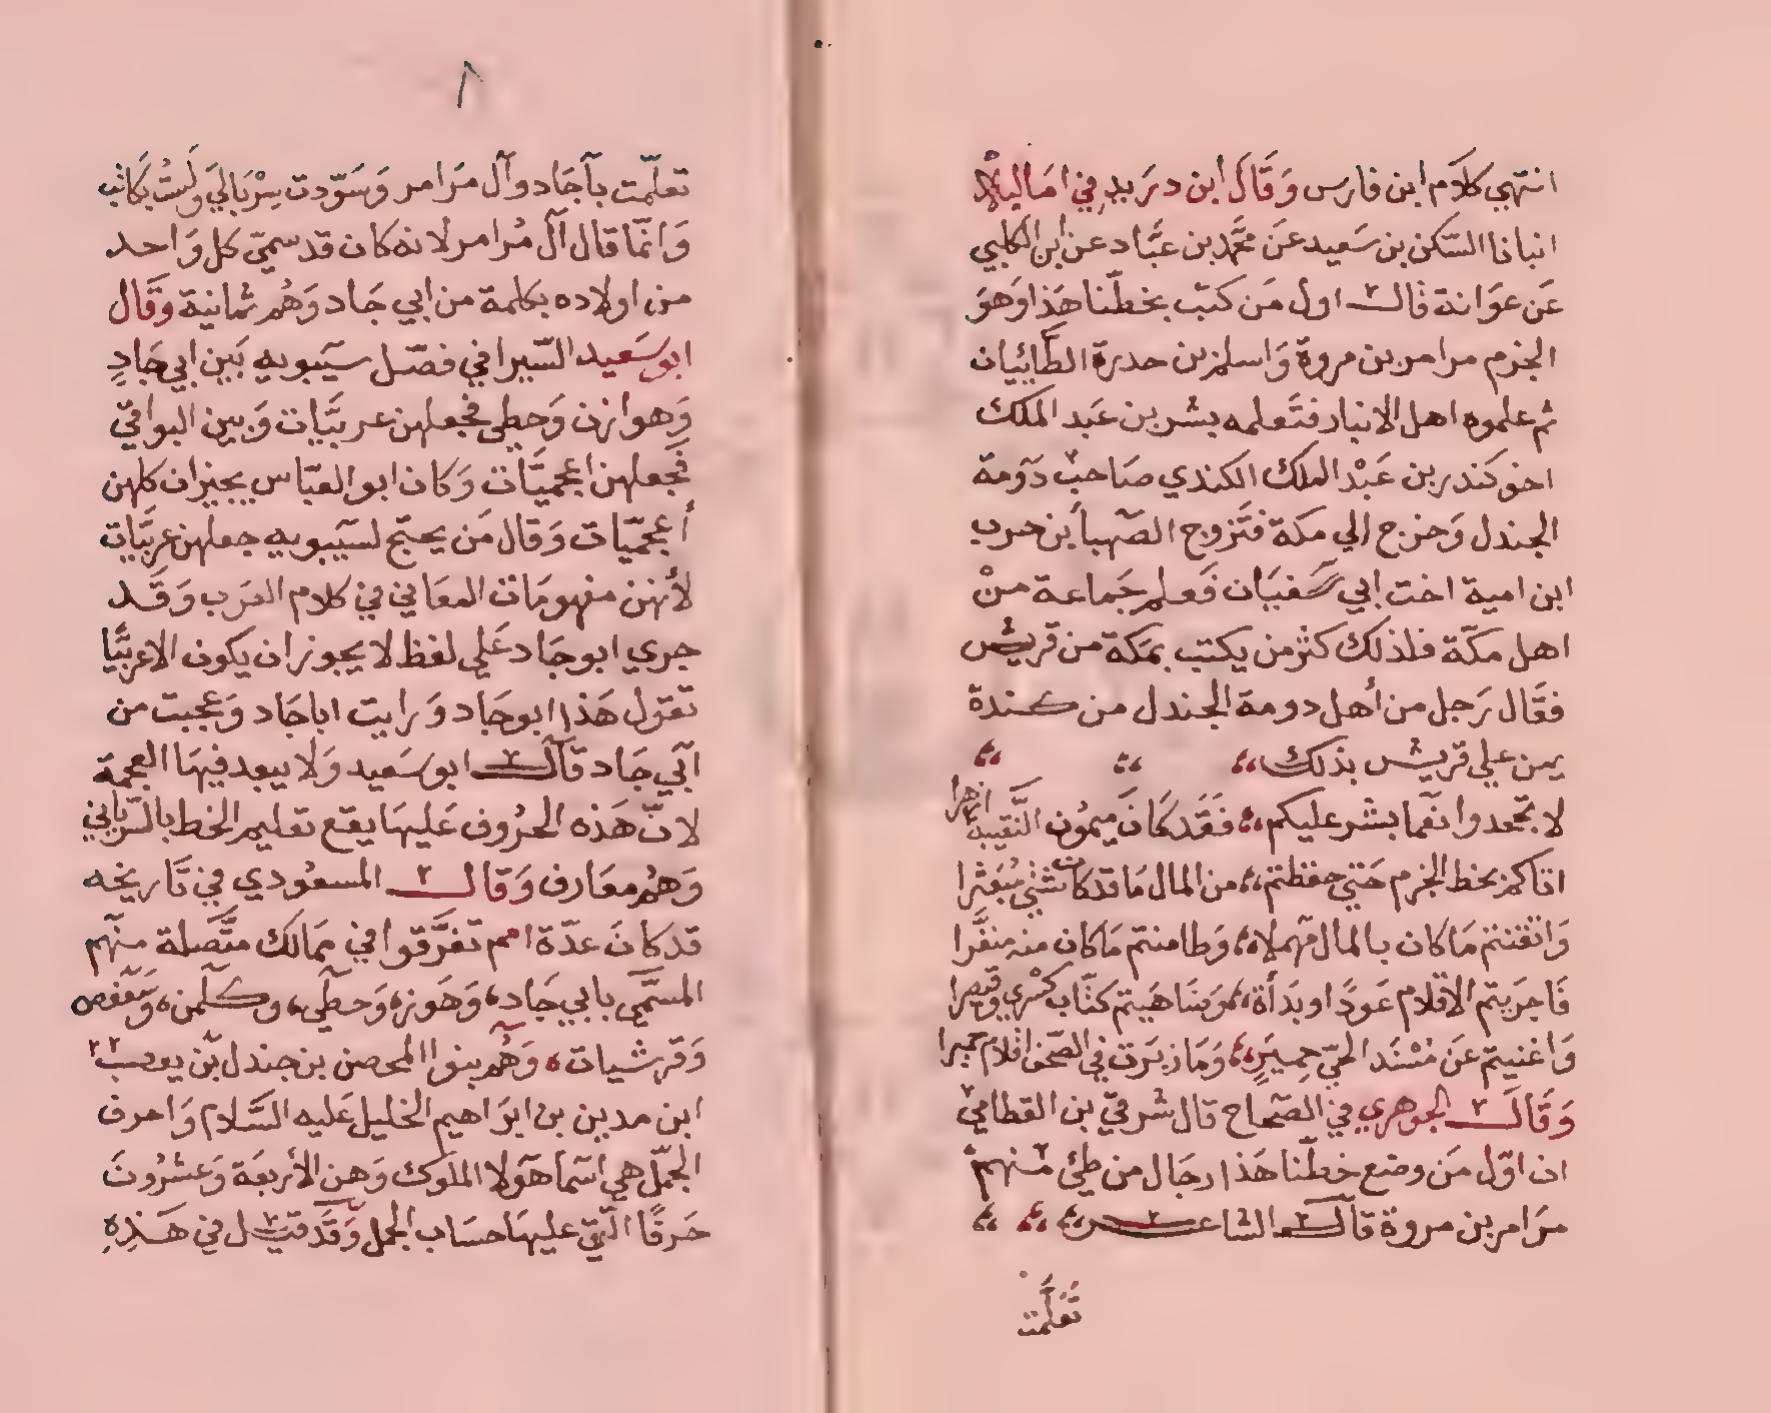 انتهي كلام ابن فارس وَقَالَ ابن دريد في اماليه
انبانا السّكن بن سَعيد عَن محَمّد بن عبَّاد عن ابن الكلبي
عَن عوَانة قال اول مَن كتب بخطّنا هَذا وَهوَ
الجزم مرامر بن مروة وَاسلم بن حدرة الطَّائيان
ثم علموه اهل الانبار فتَعلمه بشر بن عَبد الملك
اخو كندر بن عَبْد الملك الكندي صَاحب دَومة
الجندل وَخرج الي مكة فتَزوج الصّهبا بن حرب
ابن امية اخت ابي سَفيَان فَعلم جَماعة منْ
اهل مكّة فلذلك كثر من يكتب بمَكة من قريش
فقَال رَجل من أهل دومة الجندل من كندة
يمن علي قريش بذلك
لا تجحدوا نعما بشر عليكم فَقَد كَانَ ميمُون النَّقيبة ازهرا
اتاكم بخط الجزم حَتي حفظتم من المال مَا قد كان شتي مُبَعثرا
وَاتقنتم مَا كان بالمال مهملا وَطامنتم مَا كان منه منفَّرا
فَاجرَيتم الاقلام عَودًا وبدَأة وَضَاهَيتم كتّاب كسْري وقيصرا
وَاغنيتم عَن مُسْنَد الحيّ حِميَرٍ وَمَا زبَرت في الصّحف اقلام حميرا
وَقَالَ الجوهري في الصّحاح قال شرقيّ بن القطامي
ان اوّل مَن وضع خطّنا هَذا رجَال من طيئ منهم
مرَامر بن مروة قال الشاعر
تعَلَّمت
٨
تعلّمت بآجَاد وآل مرَامر وَسَوّدت سِرْبَالي وَلَستُ بكَاتب
وَانمّا قال آل مُرامر لانه كان قد سميّ كل وَاحد
من اولاده بكلمة من ابي جَاد وَهُم ثمانية وقَال
ابو سَعيد السّيرافي فصّل سيَبويه بَين ابي جَادٍ
وَهوازن وَحطي فجعلهن عربيَّات وَبين البواقيّ
فجَعلهن اعجميَّات وَكان ابو العبّاس يجيزان كلهن
أعجميّات وَقال مَن يحتج لسَيبويه جعلهن عربيَّات
لأنهن مفهومَات المعَاني في كلام العرَب وَقَد
جري ابو جَاد عَلي لفظ لا يجوز ان يكون الا عربيًّا
تقول هَذا ابو جَاد وَرايت ابا جَاد وَعجبت من
ابي جَاد قال ابو سَعيد وَلا يبعد فيهَا العجمة
لانّ هَذه الحرُوف عَليهَا يقع تعليم الخط بالسّرياني
وَهُم معَارف وَقال المسعُودي في تَاريخه
قد كانَ عدّة امم تفرَّقوا في ممَالك متَّصلة منهم
المسَمّي بابي جَاد، وَهَوز، وَحطي، وكلمن، وَسَعْفص
وَقرشيات، وَهُم بنوا المحصن بن جندل بن يعصب
ابن مدين بن ابرَاهيم الخليل عَليه السَّلام وَاحرف
الجمّل هي اسمَا هَولا الملوك وَهن الأربعَة وَعشرُونَ
حَرفًا الّتي عليهَا حسَاب الجمل وَقَد قيل في هَذِهِ